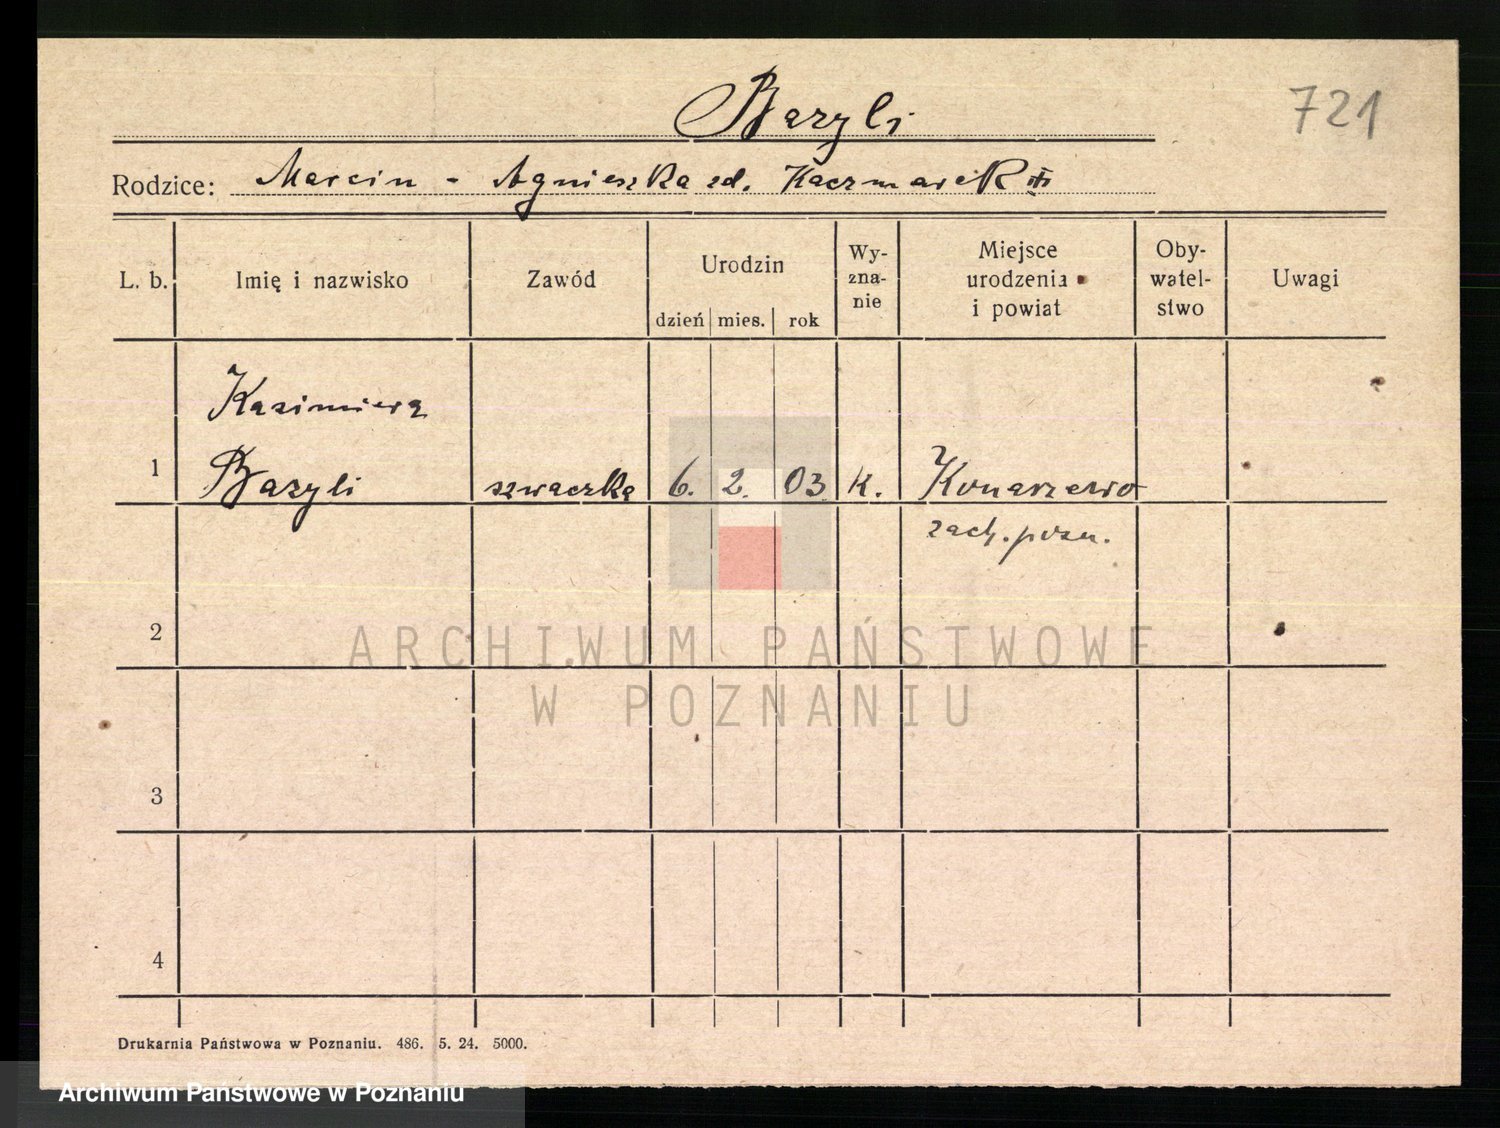 Bazyli
721
Rodzice: Marcin - Agnieszka zd. Kaczmarek
L. b.
Imię i nazwisko
Zawód
Urodzin
dzień mies. rok
Wy-
zna-
nie
Miejsce
urodzenia
i powiat
Oby-
watel-
stwo
Uwagi
Kazimiera
1 Bazyli szwaczka 6. 2. 03. k. Konarzewo
zach. pozn.
2
ARCHIWUM PAŃSTWOWE
W POZNANIU
3
4
Drukarnia Państwowa w Poznaniu. 486. 5. 24. 5000.
Archiwum Państwowe w Poznaniu